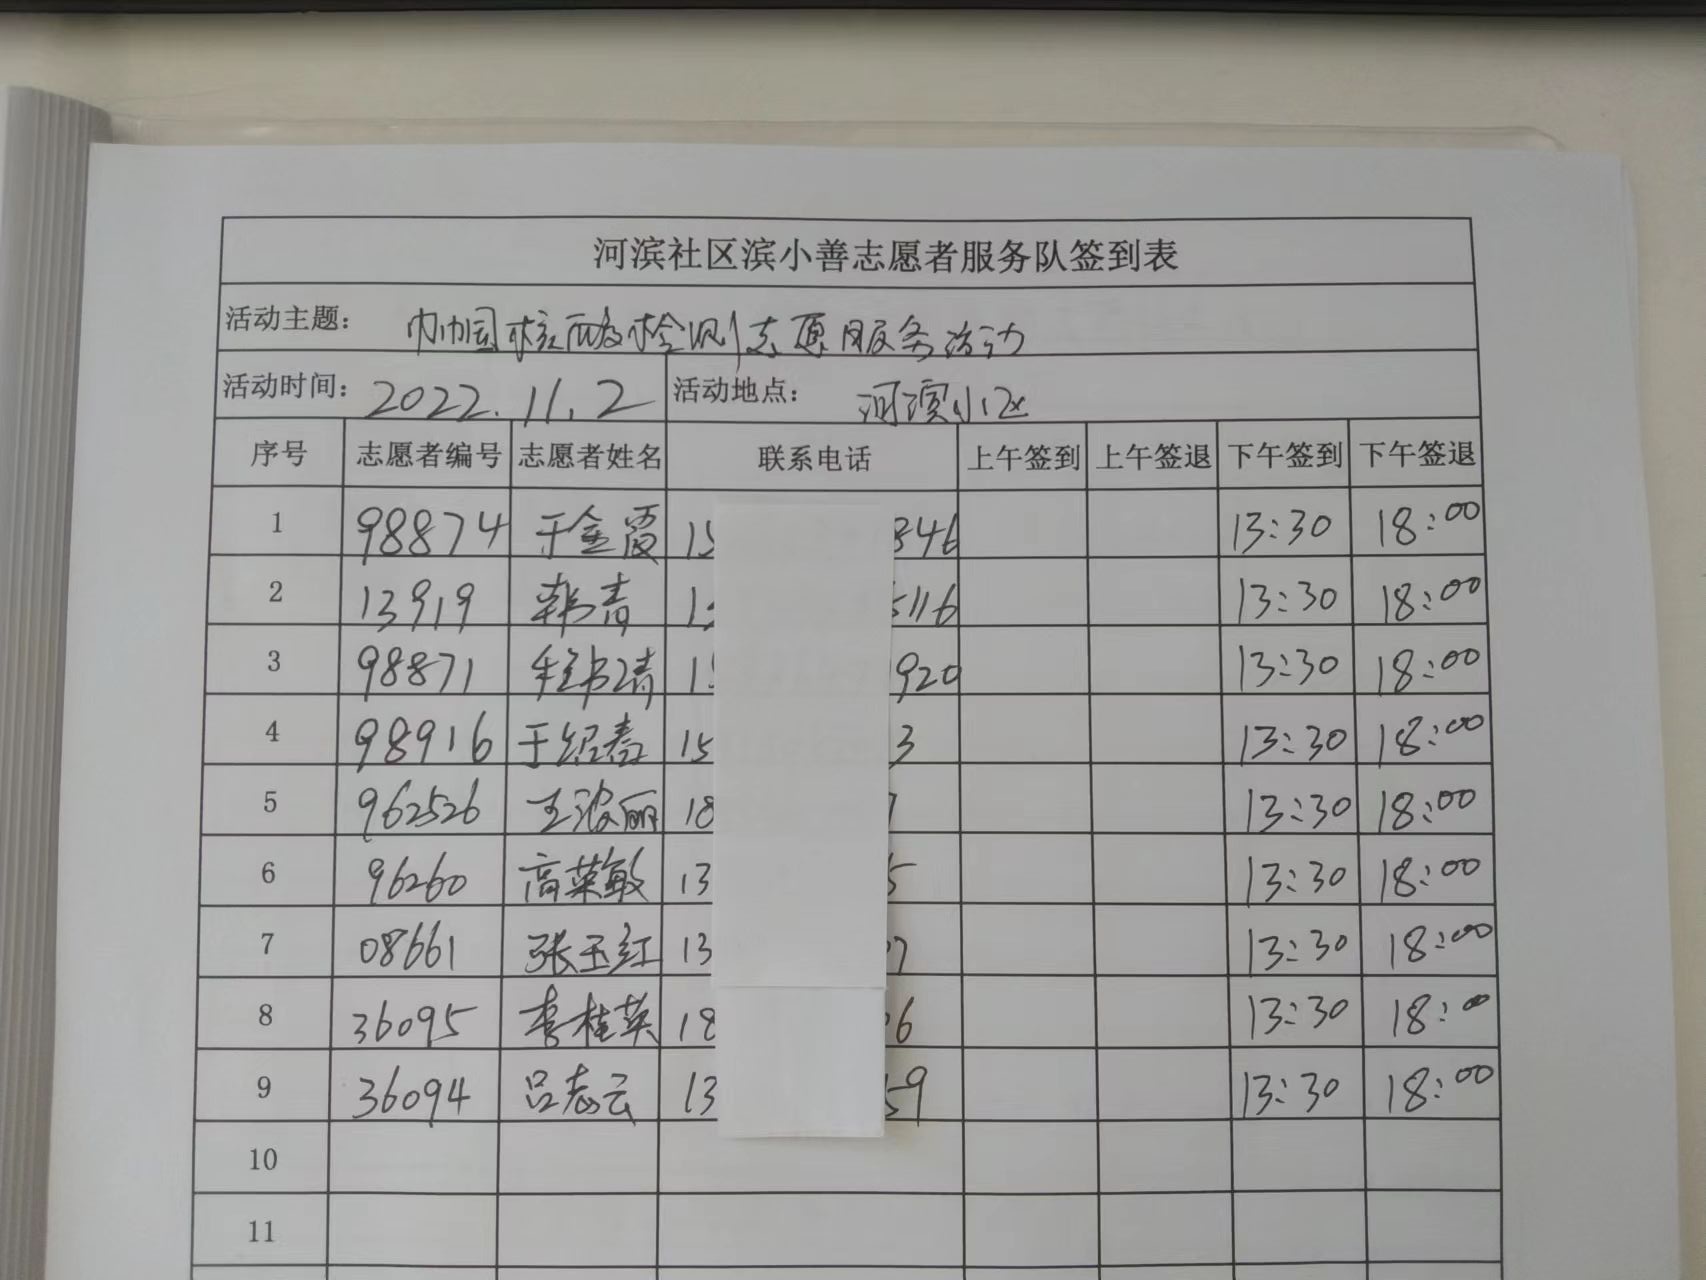 河滨社区滨小善志愿者服务队签到表
活动主题: 巾帼核酸检测志愿服务活动
活动时间: 2022.11.2 活动地点: 河滨小区
序号 志愿者编号 志愿者姓名 联系电话 上午签到 上午签退 下午签到 下午签退
1 98874 于金霞 15 346 13:30 18:00
2 13919 韩青 1 5116 13:30 18:00
3 98871 程书靖 15 920 13:30 18:00
4 98916 于绍春 15 3 13:30 18:00
5 962526 王淑丽 18 7 13:30 18:00
6 96260 高菜敏 13 5 13:30 18:00
7 08661 张玉红 13 07 13:30 18:00
8 36095 李桂英 18 06 13:30 18:00
9 36094 吕志云 13 59 13:30 18:00
10
11